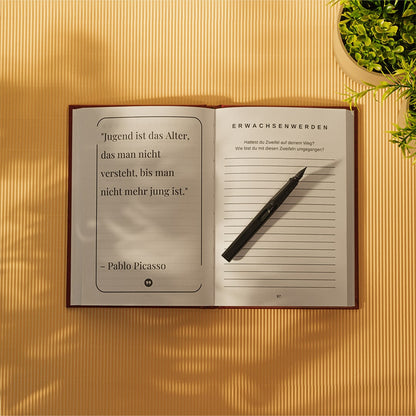 "Jugend ist das Alter,
das man nicht
versteht, bis man
nicht mehr jung ist."
– Pablo Picasso
ERWACHSENWERDEN
Hattest du Zweifel auf deinem Weg?
Wie bist du mit diesen Zweifeln umgegangen?